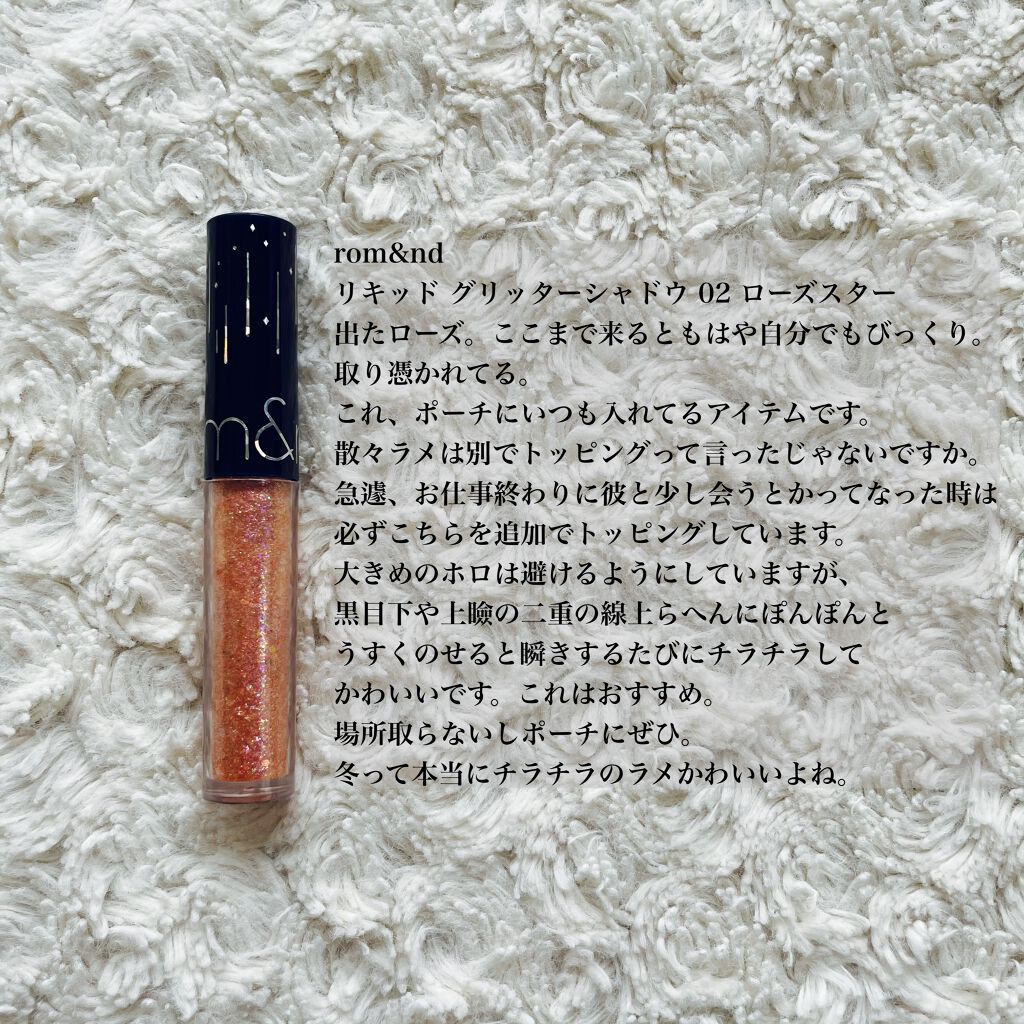 rom&nd
リキッド グリッターシャドウ 02 ローズスター
出たローズ。ここまで来るともはや自分でもびっくり。
取り憑かれてる。
これ、ポーチにいつも入れてるアイテムです。
散々ラメは別でトッピングって言ったじゃないですか。
急遽、お仕事終わりに彼と少し会うとかってなった時は
必ずこちらを追加でトッピングしています。
大きめのホロは避けるようにしていますが、
黒目下や上瞼の二重の線上らへんにぽんぽんと
うすくのせると瞬きするたびにチラチラして
かわいいです。これはおすすめ。
場所取らないしポーチにぜひ。
冬って本当にチラチラのラメかわいいよね。
m&